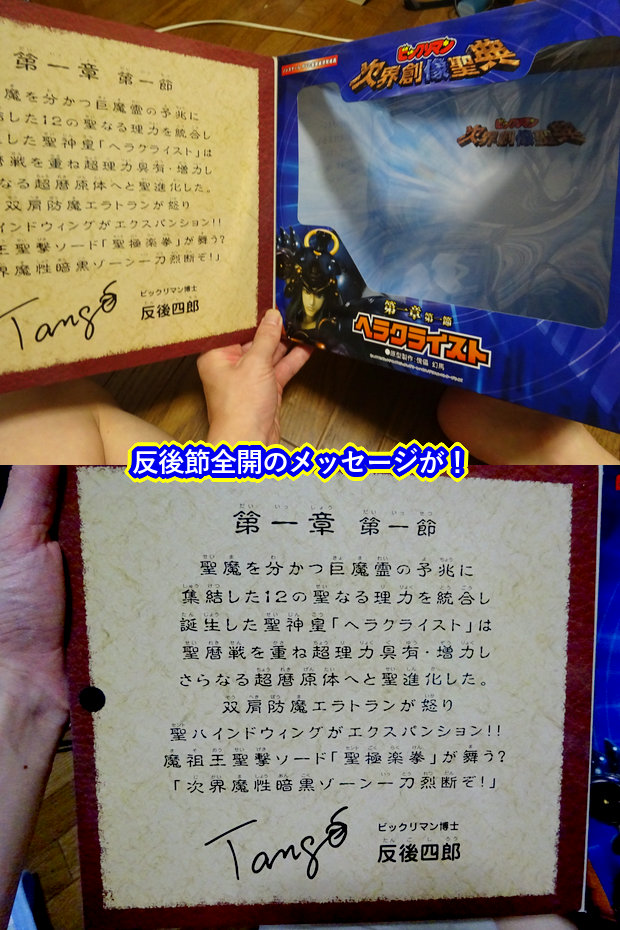 第一章 第一節
魔を分かつ巨魔霊の予兆に
結した12の聖なる理力を統合し
した聖神皇「ヘラクライスト」は
暦戦を重ね超理力具有・増力し
なる超暦原体へと聖進化した。
双肩防魔エラトランが怒り
ハインドウィングがエクスパンション!!
王聖撃ソード「聖極楽拳」が舞う?
界魔性暗黒ゾーン一刀烈断ぞ!」
Tango
ビックリマン博士
反後四郎
ビックリマン
次界創像聖典
ビックリマン
次界創像聖典
第一章 第一節
ヘラクライスト
反後節全開のメッセージが!
第一章 第一節
聖魔を分かつ巨魔霊の予兆に
集結した12の聖なる理力を統合し
誕生した聖神皇「ヘラクライスト」は
聖暦戦を重ね超理力具有・増力し
さらなる超暦原体へと聖進化した。
双肩防魔エラトランが怒り
聖ハインドウィングがエクスパンション!!
魔祖王聖撃ソード「聖極楽拳」が舞う?
「次界魔性暗黒ゾーン一刀烈断ぞ!」
Tango
ビックリマン博士
反後四郎